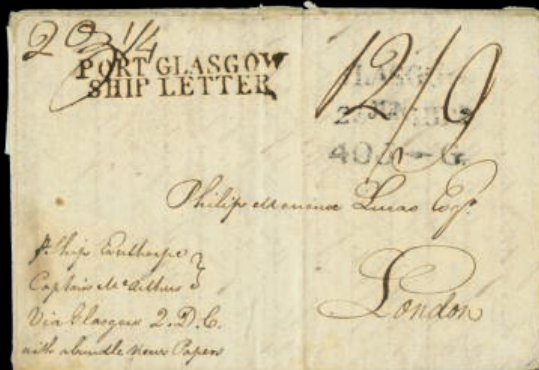 2 oz 1/4
PORT GLASGOW
SHIP LETTER
12/6
GLASGOW
403 — G
Philip Lucas Esqr.
London
Pr Ship Eutherpe
Captain McArthur
Via Glasgow 2.D.C.
with a bundle News Papers